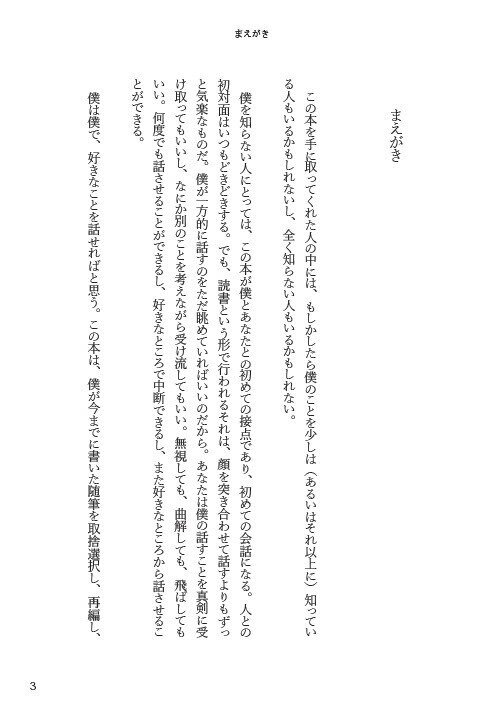 まえがき
まえがき
この本を手に取ってくれた人の中には、もしかしたら僕のことを少しは（あるいはそれ以上に）知ってい
る人もいるかもしれないし、全く知らない人もいるかもしれない。
僕を知らない人にとっては、この本が僕とあなたとの初めての接点であり、初めての会話になる。人との
初対面はいつもどきどきする。でも、読書という形で行われるそれは、顔を突き合わせて話すよりもずっ
と気楽なものだ。僕が一方的に話すのをただ眺めていればいいのだから。あなたは僕の話すことを真剣に受
け取ってもいいし、なにか別のことを考えながら受け流してもいい。無視しても、曲解しても、飛ばしても
いい。何度でも話させることができるし、好きなところで中断できるし、また好きなところから話させるこ
とができる。
僕は僕で、好きなことを話せればと思う。この本は、僕が今までに書いた随筆を取捨選択し、再編し、
3